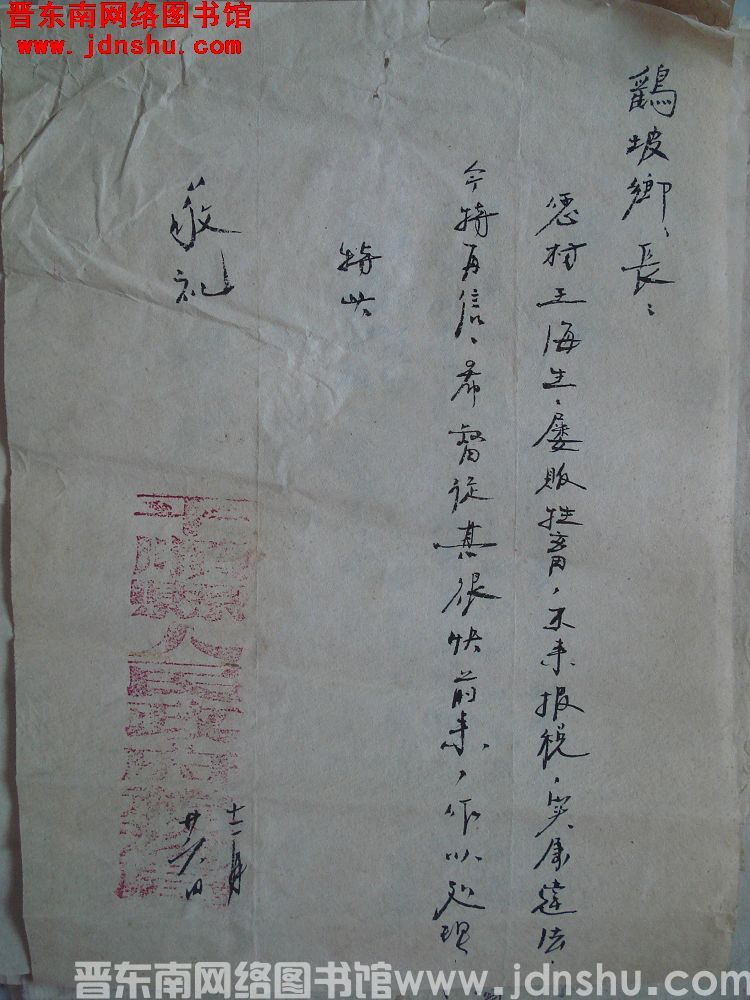 晋东南网络图书馆
www.jdnshu.com
鷄坡鄉長：
您村王海生、屡販牲畜，不来报税，实属違法，
今特再信、希督促其很快前来，作以处理，
特此
敬礼
平順縣人民政府
十二月
廿六日
晋东南网络图书馆www.jdnshu.com